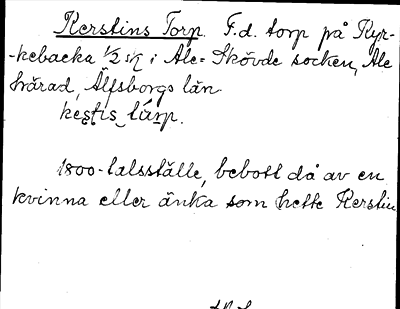 Kerstins Torp. F.d. torp på Kyr-
-kebacka 1/2 sk i Ale-Skövde socken, Ale
härad, Älfsborgs län.
kęstis_tårp.
1800-talsställe, bebott då av en
kvinna eller änka som hette Kerstin